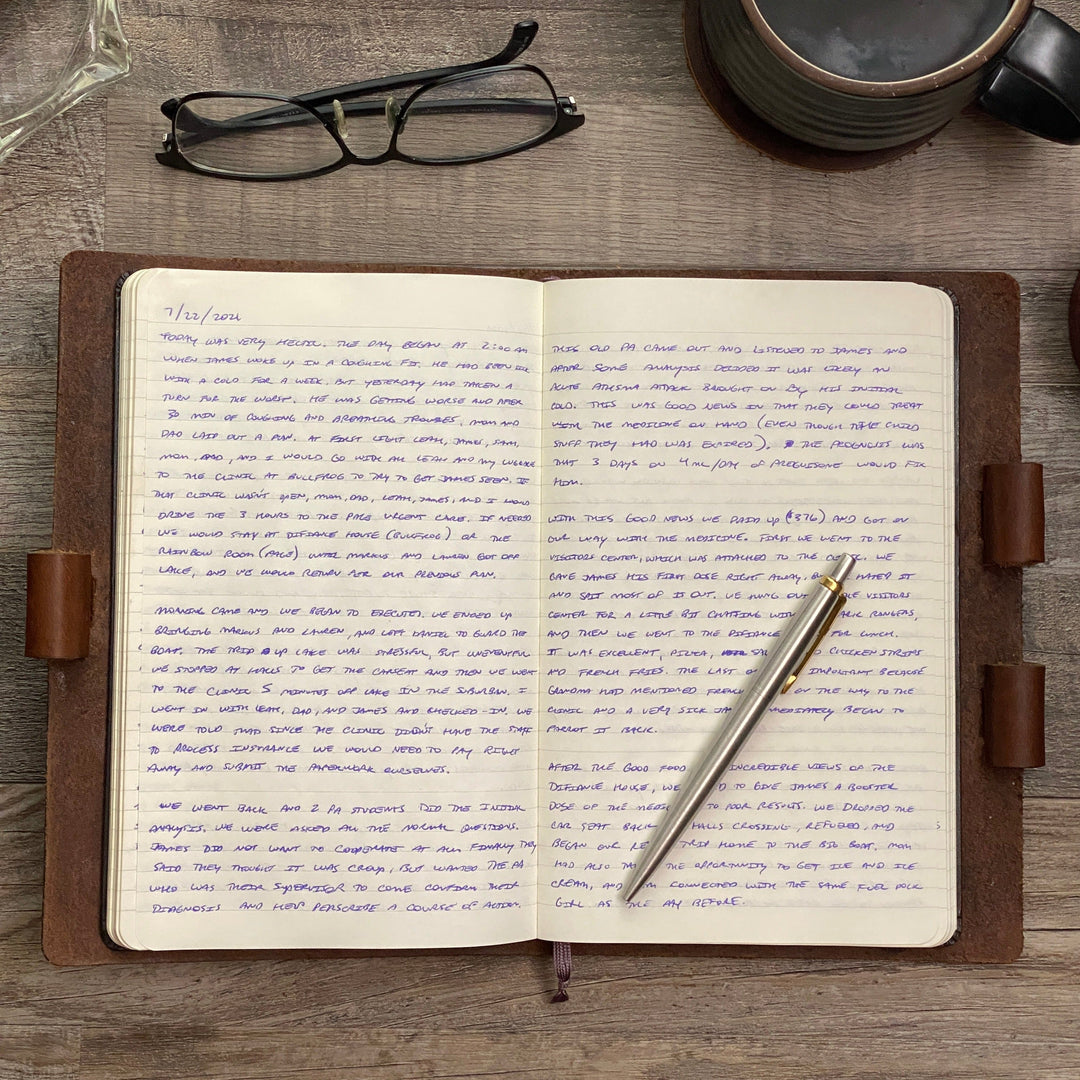 7/22/2021
TODAY WAS VERY HECTIC. THE DAY BEGAN AT 2:00 AM
WHEN JAMES WOKE UP IN A COUGHING FIT. HE HAD BEEN
WITH A COLD FOR A WEEK. BUT YESTERDAY HAD TAKEN A
TURN FOR THE WORST. HE WAS GETTING WORSE AND AFTER
30 MIN OF COUGHING AND BREATHING TROUBLES, MOM AND
DAD LAID OUT A PLAN. AT FIRST LIGHT LEAH, JAMES, SAM,
MOM, DAD, AND I WOULD GO WITH ALL LEAH AND MY LUGGAGE
TO THE CLINIC AT BULLFROG TO TRY TO GET JAMES SEEN. IF
THAT CLINIC WASN'T OPEN, MOM, DAD, LEAH, JAMES, AND I WOULD
DRIVE THE 3 HOURS TO THE PAGE URGENT CARE. IF NEEDED
WE WOULD STAY AT DIFIANCE HOUSE (BULLFROG) OR THE
RAINBOW ROOM (PAGE) UNTIL MARKUS AND LAUREN GOT OFF
LAKE, AND WE WOULD RETURN PER OUR PREVIOUS PLAN.
MORNING CAME AND WE BEGAN TO EXECUTE. WE ENDED UP
BRINGING MARKUS AND LAUREN, AND LEFT DANIEL TO GUARD THE
BOAT. THE TRIP UP LAKE WAS STRESSFUL, BUT UNEVENTFUL
WE STOPPED AT HALLS TO GET THE CARSEAT AND THEN WE WENT
TO THE CLINIC 5 MINUTES OFF LAKE IN THE SUBURBAN. I
WENT IN WITH LEAH, DAD, AND JAMES AND CHECKED-IN. WE
WERE TOLD THAT SINCE THE CLINIC DIDN'T HAVE THE STAFF
TO PROCESS INSURANCE WE WOULD NEED TO PAY RIGHT
AWAY AND SUBMIT THE PAPERWORK OURSELVES.
WE WENT BACK AND 2 PA STUDENTS DID THE INITIAL
ANALYSIS. WE WERE ASKED ALL THE NORMAL QUESTIONS.
JAMES DID NOT WANT TO COOPERATE AT ALL. FINALLY THEY
SAID THEY THOUGHT IT WAS CROUP, BUT WANTED THE PA
WHO WAS THEIR SUPERVISOR TO COME CONFIRM THEIR
DIAGNOSIS AND HELP PERSCRIBE A COURSE OF ACTION.
THIS OLD PA CAME OUT AND LISTENED TO JAMES AND
AFTER SOME ANALYSIS DECIDED IT WAS LIKELY AN
ACUTE ATHSMA ATTACK BROUGHT ON BY HIS INITIAL
COLD. THIS WAS GOOD NEWS IN THAT THEY COULD TREAT
WITH THE MEDICINE ON HAND (EVEN THOUGH THE CHILD
STUFF THEY HAD WAS EXPIRED). THE PROGNOSIS WAS
THAT 3 DAYS ON 4 ML/DAY OF PREGNISONE WOULD FIX
HIM.
WITH THIS GOOD NEWS WE PAID UP ($376) AND GOT ON
OUR WAY WITH THE MEDICINE. FIRST WE WENT TO THE
VISITORS CENTER, WHICH WAS ATTACHED TO THE CLINIC. WE
GAVE JAMES HIS FIRST DOSE RIGHT AWAY, HATED IT
AND SPIT MOST OF IS OUT. WE HUNG OUT VISITORS
CENTER FOR A LITTLE BIT CHATTING WITH PARK RANGERS,
AND THEN WE WENT TO THE DIFIANCE FOR LUNCH.
IT WAS EXCELLENT, PIZZA, CHICKEN STRIPS
AND FRENCH FRIES. THE LAST IMPORTANT BECAUSE
GRANDMA HAD MENTIONED FRENCH ON THE WAY TO THE
CLINIC AND A VERY SICK IMMEDIATELY BEGAN TO
PARROT IT BACK.
AFTER THE GOOD FOOD INCREDIBLE VIEWS OF THE
DIFIANCE HOUSE, WE TO GIVE JAMES A BOOSTER
DOSE OF THE TO POOR RESULTS. WE DROPPED THE
CAR SEAT BACK HALLS CROSSING, REFUELED, AND
BEGAN OUR TRIP HOME TO THE BIG BOAT. MOM
HAD ALSO THE OPPORTUNITY TO GET ICE AND ICE
CREAM, AND CONNECTED WITH THE SAME FUEL DOCK
GIRL AS THE BEFORE.